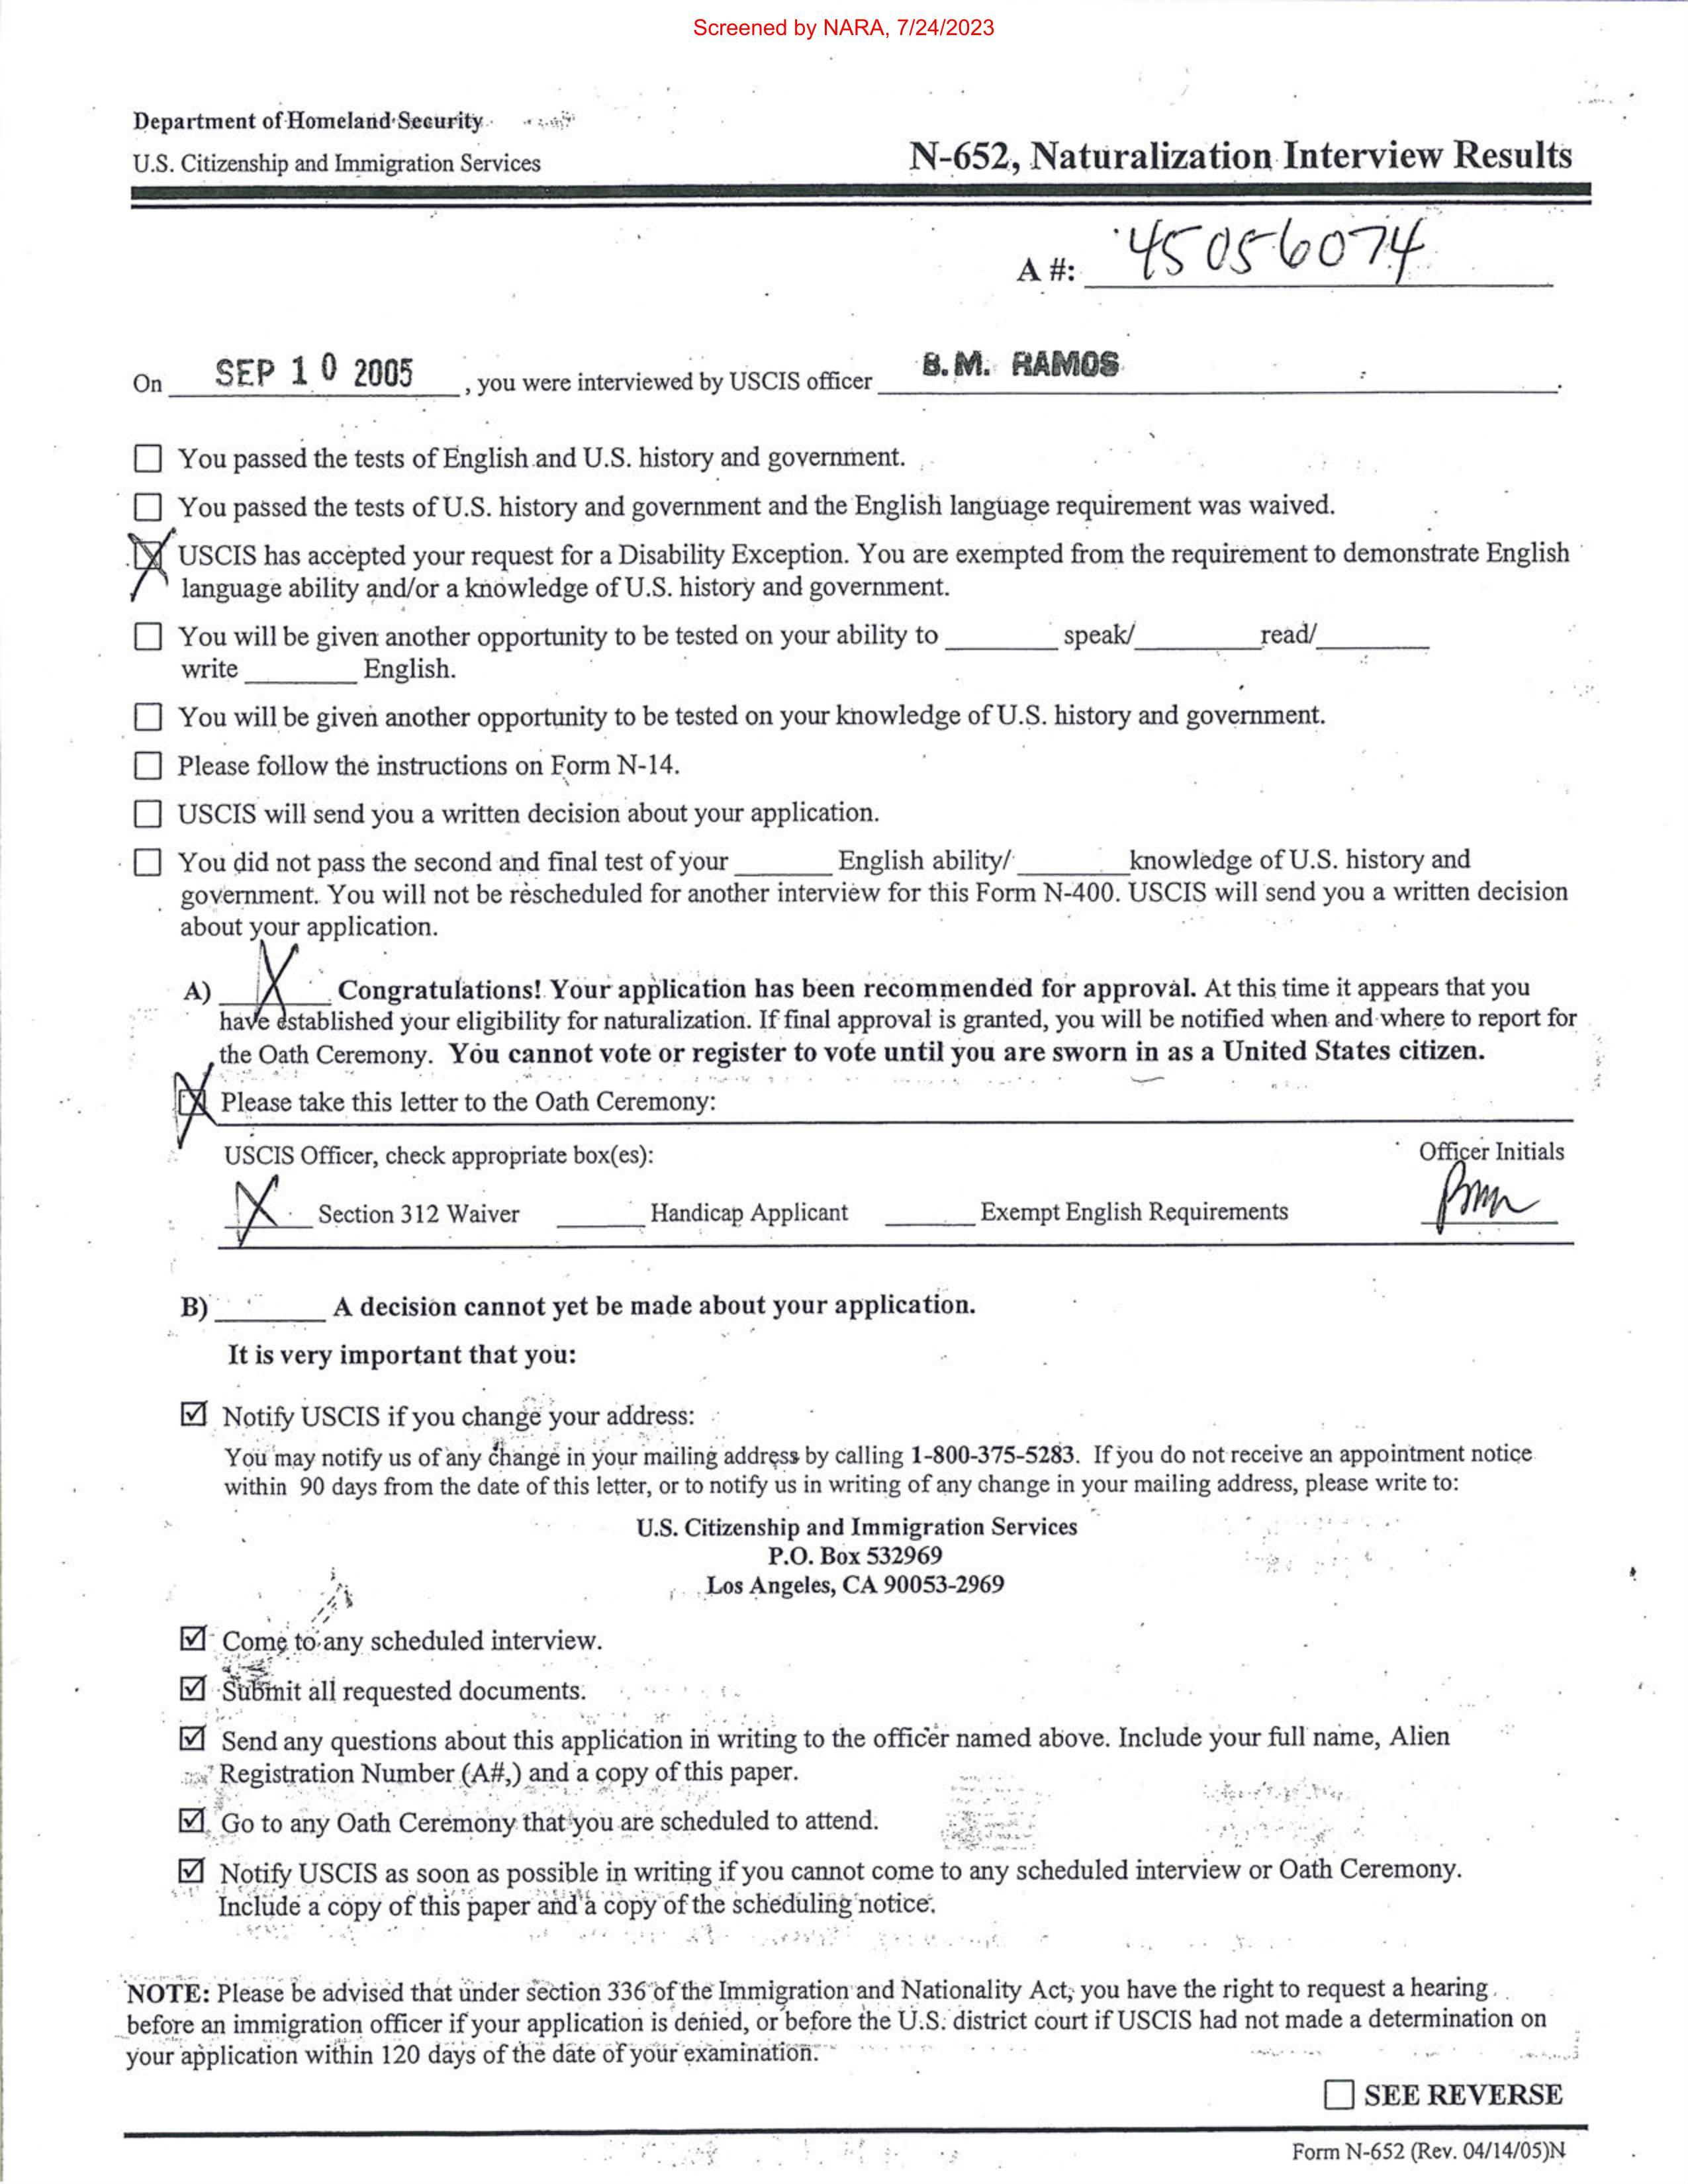 Screened by NARA, 7/24/2023
Department of Homeland Security
U.S. Citizenship and Immigration Services
N-652, Naturalization Interview Results
A #: 45056074
On SEP 10 2005, you were interviewed by USCIS officer B.M. RAMOS.
☐ You passed the tests of English and U.S. history and government.
☐ You passed the tests of U.S. history and government and the English language requirement was waived.
☒ USCIS has accepted your request for a Disability Exception. You are exempted from the requirement to demonstrate English
language ability and/or a knowledge of U.S. history and government.
☐ You will be given another opportunity to be tested on your ability to ________ speak/________read/________
write ________ English.
☐ You will be given another opportunity to be tested on your knowledge of U.S. history and government.
☐ Please follow the instructions on Form N-14.
☐ USCIS will send you a written decision about your application.
☐ You did not pass the second and final test of your _______ English ability/ ________knowledge of U.S. history and
government. You will not be rescheduled for another interview for this Form N-400. USCIS will send you a written decision
about your application.
A) X Congratulations! Your application has been recommended for approval. At this time it appears that you
have established your eligibility for naturalization. If final approval is granted, you will be notified when and where to report for
the Oath Ceremony. You cannot vote or register to vote until you are sworn in as a United States citizen.
☒ Please take this letter to the Oath Ceremony:
USCIS Officer, check appropriate box(es):
Officer Initials
X Section 312 Waiver ______ Handicap Applicant ______ Exempt English Requirements
B) ________ A decision cannot yet be made about your application.
It is very important that you:
☑ Notify USCIS if you change your address:
You may notify us of any change in your mailing address by calling 1-800-375-5283. If you do not receive an appointment notice
within 90 days from the date of this letter, or to notify us in writing of any change in your mailing address, please write to:
U.S. Citizenship and Immigration Services
P.O. Box 532969
Los Angeles, CA 90053-2969
☑ Come to any scheduled interview.
☑ Submit all requested documents.
☑ Send any questions about this application in writing to the officer named above. Include your full name, Alien
Registration Number (A#,) and a copy of this paper.
☑ Go to any Oath Ceremony that you are scheduled to attend.
☑ Notify USCIS as soon as possible in writing if you cannot come to any scheduled interview or Oath Ceremony.
Include a copy of this paper and a copy of the scheduling notice.
NOTE: Please be advised that under section 336 of the Immigration and Nationality Act, you have the right to request a hearing
before an immigration officer if your application is denied, or before the U.S. district court if USCIS had not made a determination on
your application within 120 days of the date of your examination.
☐ SEE REVERSE
Form N-652 (Rev. 04/14/05)N